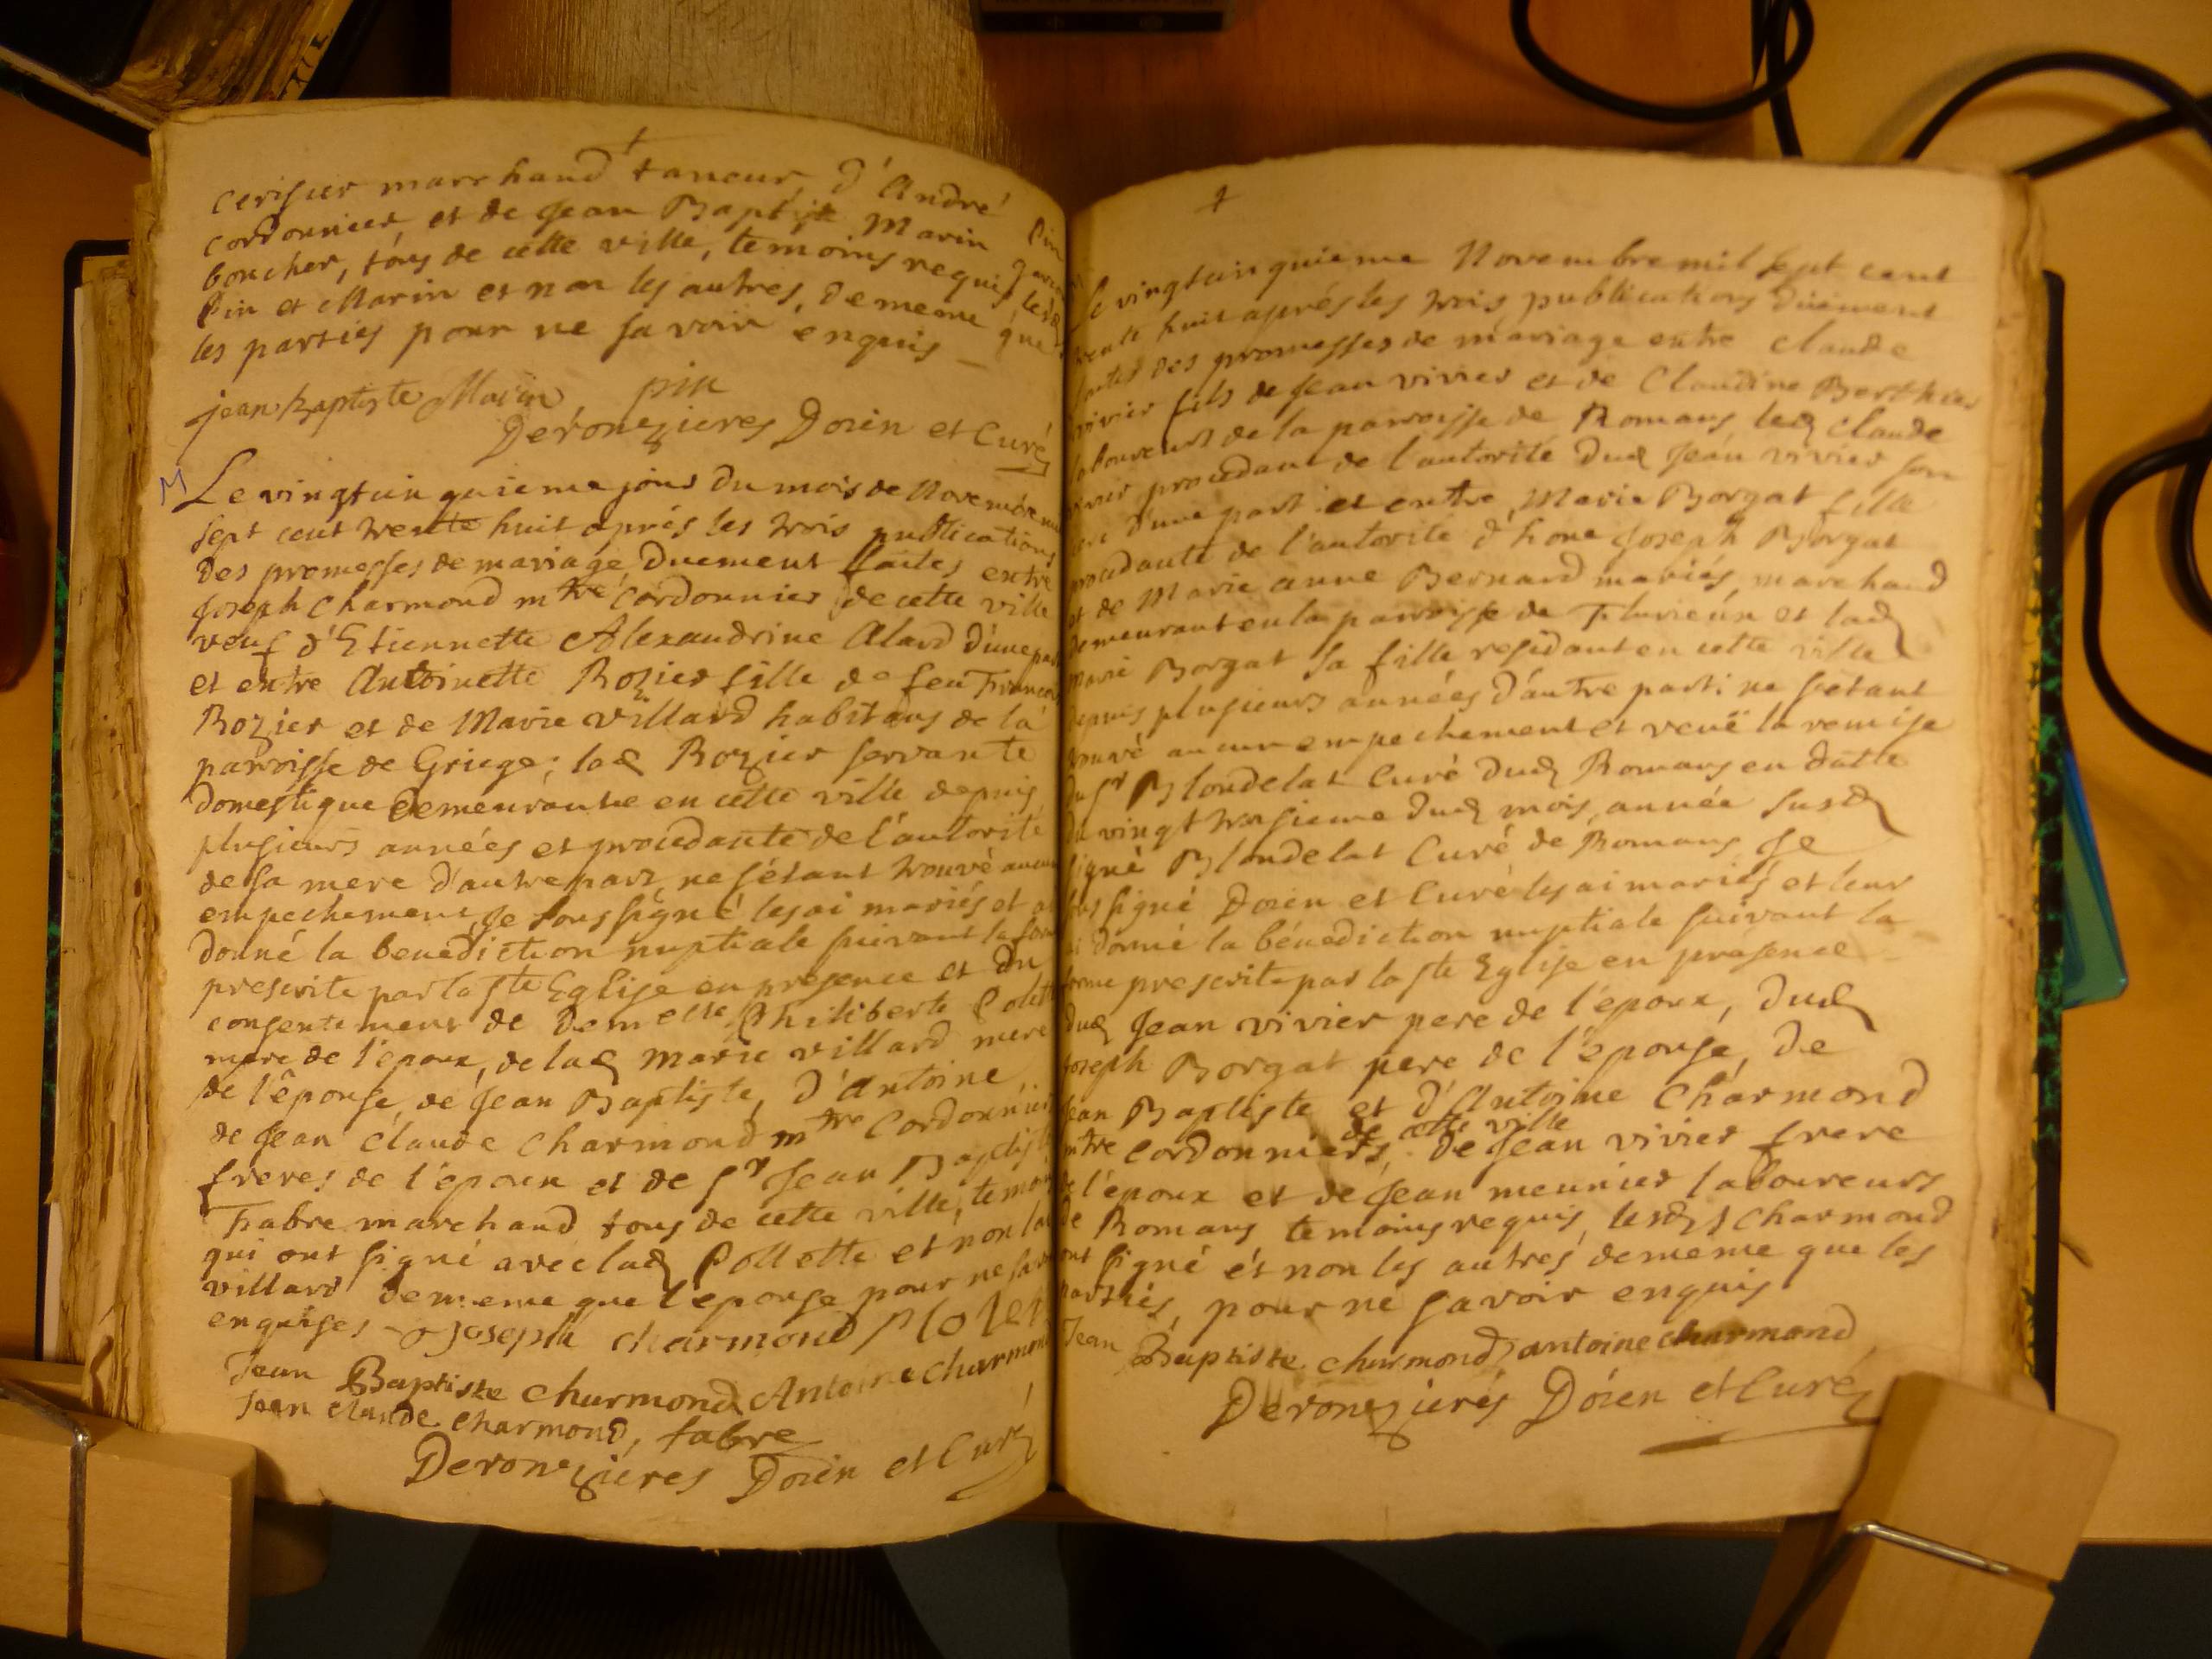 cerisier marchand taneur, d'André Pin
cordonnier, et de Jean Baptiste Marin garcon
boucher, tous de cette ville, temoins requis lesd
Pin et Marin et non les autres, de meme que
les parties pour ne savoir enquis
jean baptiste Marin pin
Deronzieres Doien et Curé
M Le vingtcinquieme jour du mois de Novembre
sept cent trente huit aprés les trois publications
des promesses de mariage duement faites entre
Joseph Charmond mtre cordonnier de cette ville
veuf d'Etiennette Alexandrine Alard d'une part
et entre Antoinette Rozier fille de feu Francois
Rozier et de Marie villard habitans de la
parroisse de Griege; lad Rozier servante
domestique demeurante en cette ville depuis
plusieurs années et procedante de l'autorite
de sa mere d'autre part, ne s'étant trouvé aucun
empechement, Je soussigné les ai mariés et ai
donné la benediction nuptiale suivant la forme
prescrite par la ste Eglise en presence et du
consentement de Demelle Philiberte Colette
mere de l'epoux, de lad Marie villard mere
de l'épouse, de Jean Baptiste, d'Antoine
de Jean Claude Charmond mtre Cordonnier
freres de l'epoux et de sr Jean Baptiste
Fabre marchand tous de cette ville, temoins
qui ont signé avec lad Collette et non lad
villard de meme que l'epouse pour ne savoir
enquises Joseph charmond
Jean Baptiste charmond Antoine charmond
Jean claude charmond, fabre
Deronzieres Doien et Curé
Le vingtcinquieme Novembre mil sept cent
trente huit aprés les trois publications düement
faites des promesses de mariage entre Claude
vivier fils de Jean vivier et de Claudine Berthier
laboureurs de la parroisse de Romans led Claude
vivier procedant de l'autorité dud Jean vivier son
pere d'une part et entre Marie Borgat fille
procedante de l'autorité d'hone Joseph Borgat
et de Marie anne Bernard mariés, marchand
demeurant en la parroisse de Flurieux et lad
Marie Borgat sa fille residant en cette ville
depuis plusieurs années d'autre part; ne s'etant
trouvé aucun empechement et veuë la remise
du sr Blondelat Curé dud Romans en datte
du vingt troisieme dud mois, année susd
signé Blondelat Curé de Romans Je
soussigné Doien et Curé les ai mariés et leur
ai donné la bénediction nuptiale suivant la
forme prescrite par la ste Eglise en presence
dud Jean vivier pere de l'epoux, dud
Joseph Borgat pere de l'epouse, de
Jean Baptiste et d'Antoine Charmond
de cette ville
mtre cordonniers, de Jean vivier frere
de l'epoux et de Jean meunier laboureurs
de Romans temoins requis, lesds Charmond
ont signé et non les autres de meme que les
parties, pour ne savoir enquis
Jean Baptiste charmond, antoine charmond
Deronzierés Doien et Curé